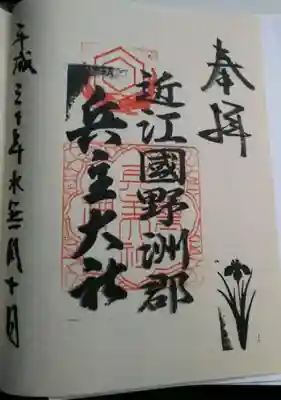 奉拝
近江國野洲郡
兵主大社
平成三十年水無月十日